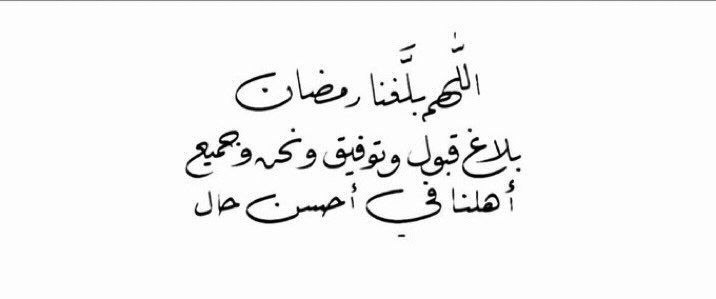 اللَّهم بلَّغنا رمضان
بلاغ قبول وتوفيق ونحن وجميع
أهلنا في أحسن حال